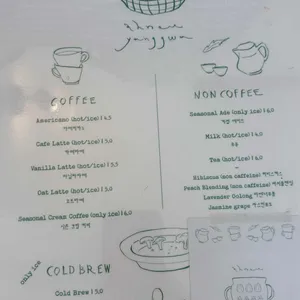 yanggwa
COFFEE
Americano (hot/ice) | 4.5
아메리카노
Cafe Latte (hot/ice) | 5.0
카페라떼
Vanilla Latte (hot/ice) | 5.5
바닐라라떼
Oat Latte (hot/ice) | 5.0
오트라떼
Seasonal Cream Coffee (only ice) | 6.0
시즌 크림 커피
only ice
COLD BREW
Cold Brew | 5.0
NON COFFEE
Seasonal Ade (only ice) | 6.0
시즌 에이드
Milk (hot/ice) | 4.0
우유
Tea (hot/ice) | 6.0
Hibiscus (non caffeine) 히비스커스
Peach Blending (non caffeine)
Lavender Oolong 라벤더우롱
Jasmine grape